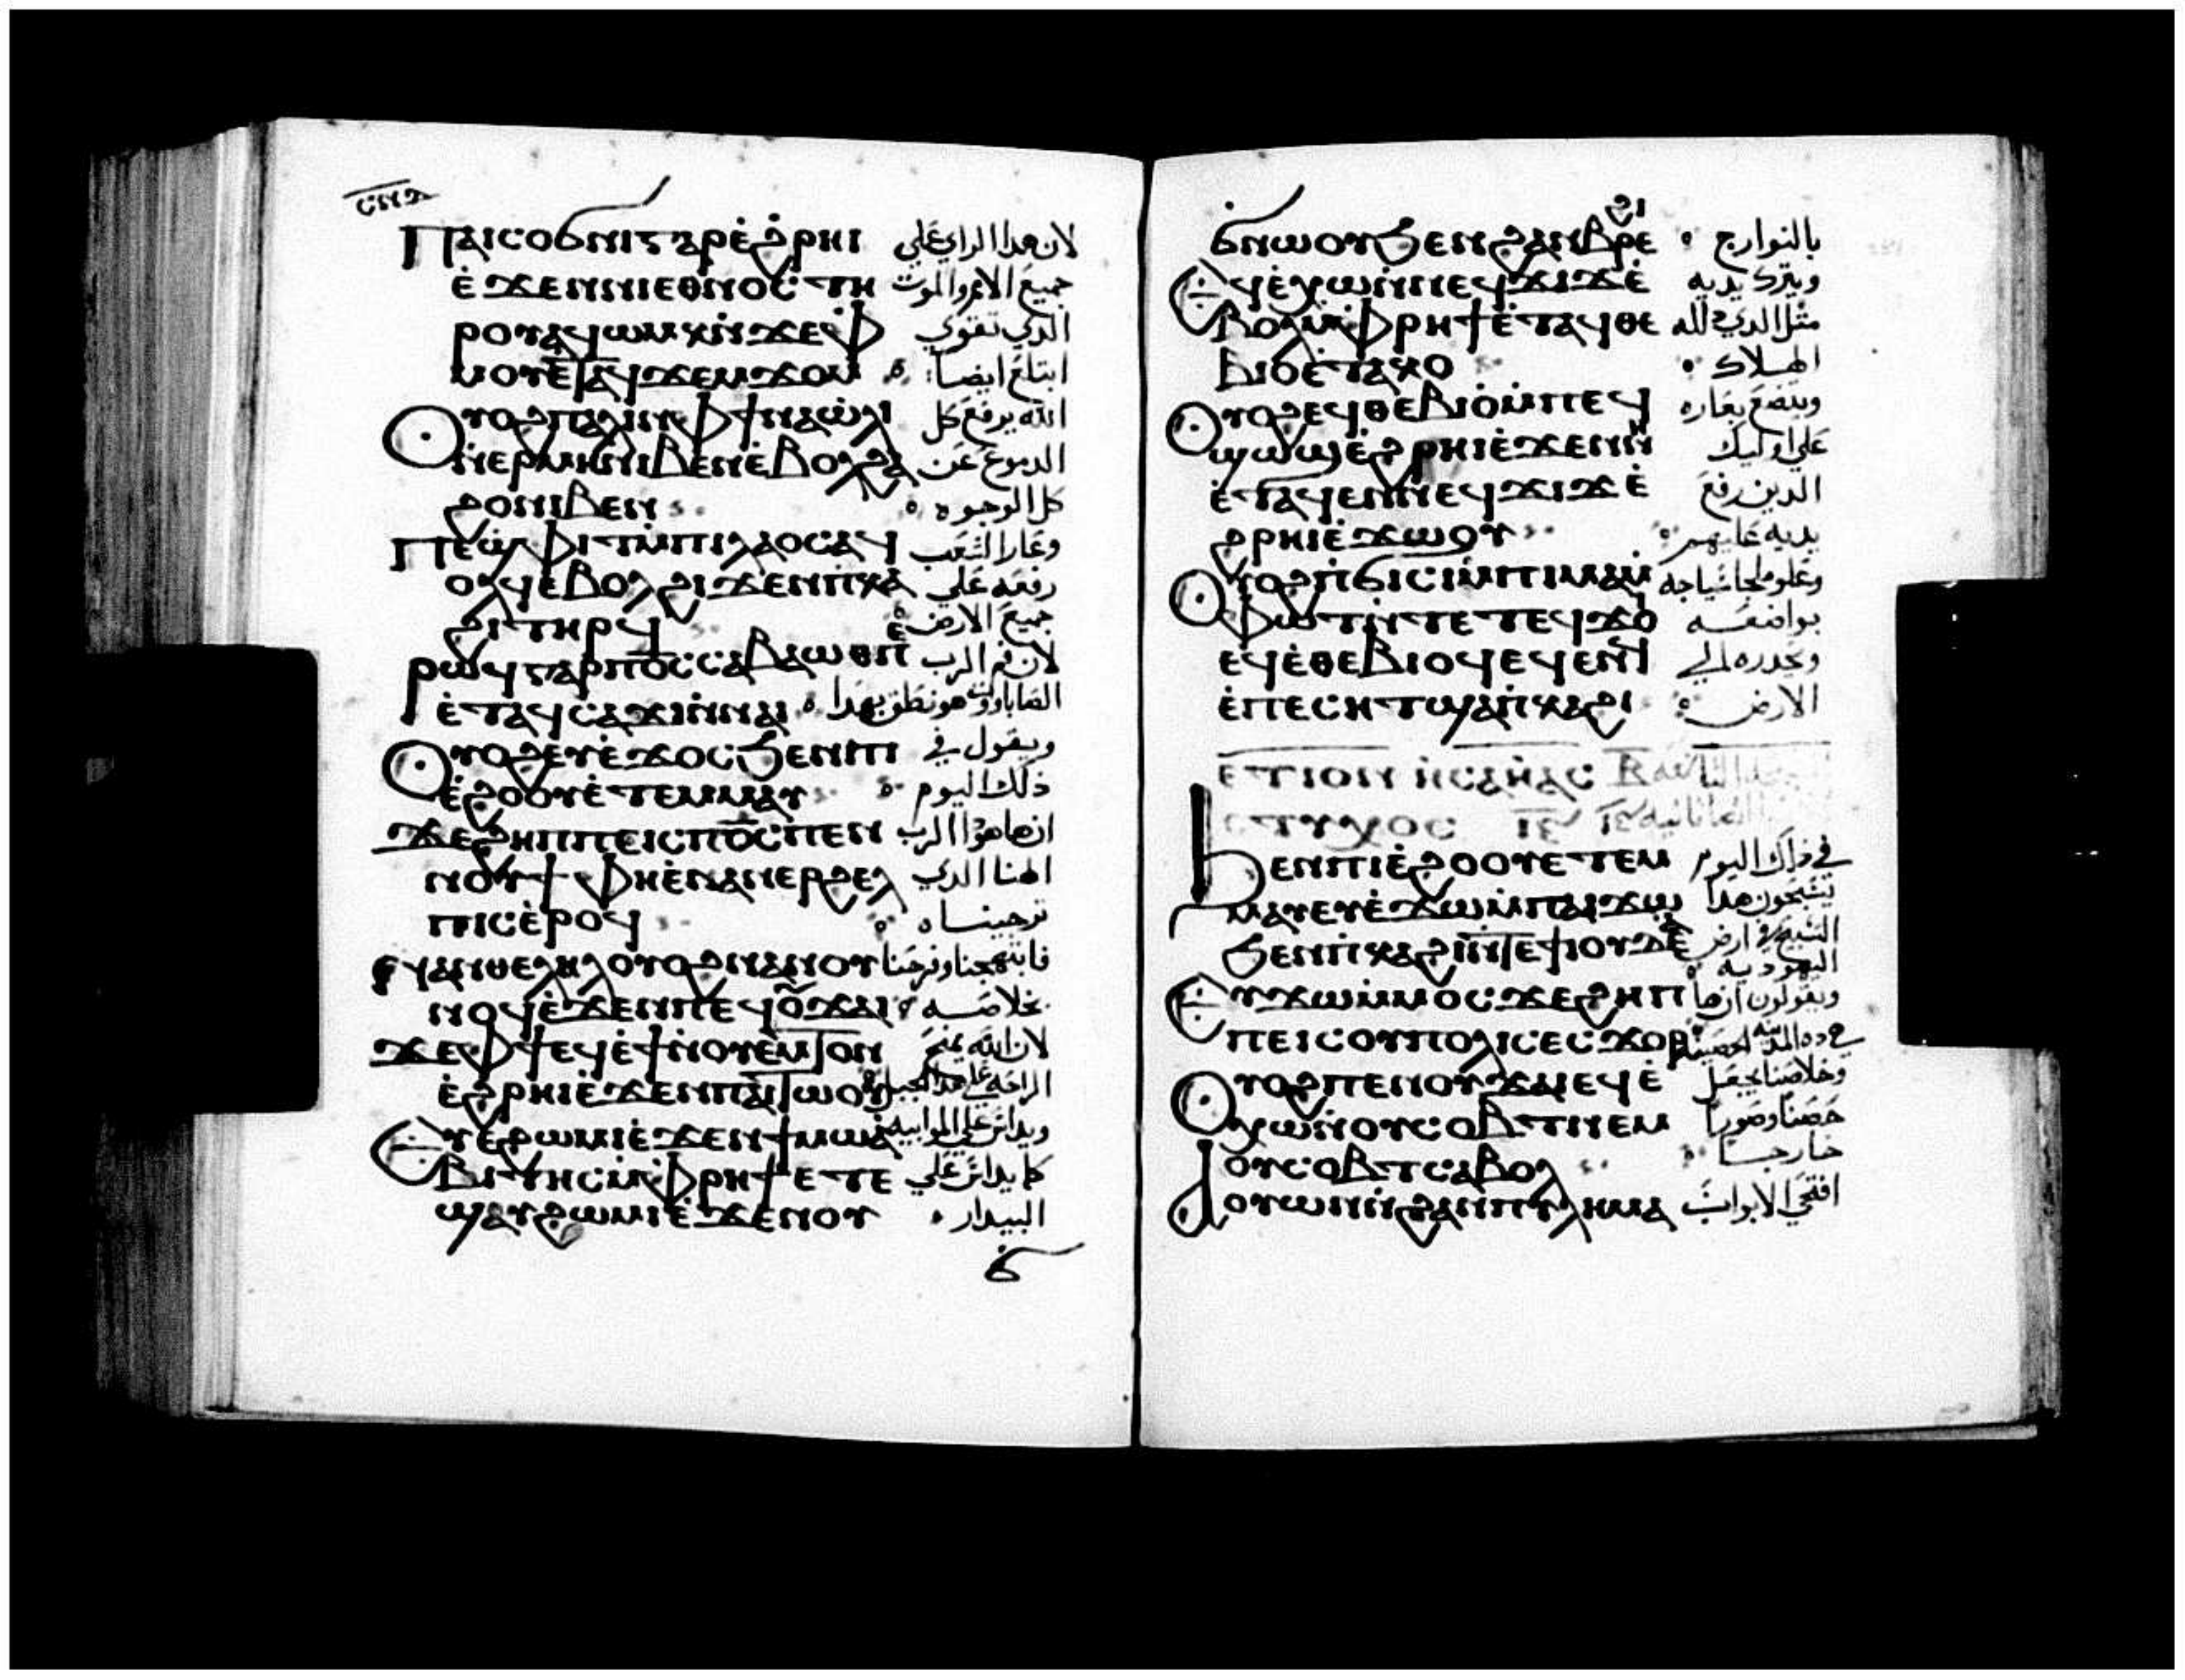 ⲡⲁⲓⲥⲟϭⲛⲓⲅⲁⲣⲉ̀ϩⲣⲏⲓ لان هدا الراي علي
ⲉ̀ϫⲉⲛⲛⲓⲉⲑⲛⲟⲥ ⲧⲏ جميع الامم والموت
ⲣⲟⲩⲁϥⲱⲙⲕⲛ̀ϫⲉⲫ الدي تقوي
ⲙⲟⲩⲉ̀ⲧⲁϥϫⲉⲙϫⲟⲙ ابتلع ايضا
ⲟⲩⲟϩⲡⲁⲗⲓⲛⲫϯⲛⲁⲱ̀ⲗⲓ الله يرفع كل
ⲛ̀ⲉⲣⲙⲏⲛⲓⲃⲉⲛⲉ̀ⲃⲟⲗϩⲁ الدموع عن
ϩⲟⲛⲓⲃⲉⲛ كل الوجوه
ⲡϣⲫⲓⲧⲙ̀ⲡⲓⲗⲁⲟⲥⲁϥ وعار الشعب
ⲟⲗϥⲉⲃⲟⲗϩⲓϫⲉⲛⲡ̀ⲕⲁ رفعه علي
ϩⲓⲧⲏⲣϥ جميع الارض
ⲣⲱϥⲅⲁⲣⲡⲟ̅ⲥ̅ⲥⲁⲃⲁⲱⲑⲡⲉ لان فم الرب
ⲉ̀ⲧⲁϥⲥⲁϫⲓⲛ̀ⲛⲁⲓ الصاباووت هو نطق بهدا
ⲟⲩⲟϩⲉⲩⲉ̀ϫⲟⲥϧⲉⲛⲡⲓ ويقول في
ⲉ̀ϩⲟⲟⲩⲉ̀ⲧⲉⲙⲙⲁⲩ ذلك اليوم
ϫⲉϩⲏⲡⲡⲉⲓⲥⲡⲟ̅ⲥ̅ⲡⲉⲛ ان هاهودا الرب
ⲛⲟⲩϯ ⲫⲏⲉ̀ⲛⲁⲛⲉⲣϩⲉⲗ الهنا الدي
ⲡⲓⲥⲉ̀ⲣⲟϥ ترجيناه
ⲉⲛⲁⲛⲑⲉⲗⲏⲗⲟⲩⲟϩⲛⲁⲛⲟⲩ فابتهجنا وفرحنا
ⲛⲟϥⲉ̀ϫⲉⲛⲡⲉϥⲟⲩϫⲁⲓ بخلاصه
ϫⲉⲫϯⲉϥⲉ̀ϯⲛ̀ⲟⲩⲉⲙⲧⲟⲛ لان الله يمنح
ⲉ̀ϩⲣⲏⲓⲉ̀ϫⲉⲛⲡⲁⲓⲧⲱⲟⲩ الراحه علي هدا الجبل
ⲉⲩⲉ̀ϩⲱⲙⲓⲉ̀ϫⲉⲛϯⲙⲱⲁ ويداس علي الموابيه
ⲃⲓⲧⲏⲥⲙ̀ⲫⲣⲏϯⲉⲧⲉ كما يداس علي
ϣⲁⲩϩⲱⲙⲓⲉ̀ϫⲉⲛⲟⲩ البيدار
ϭ
ϭⲛⲱⲟⲩϧⲉⲛϩⲁⲛⲃⲣⲉϩⲓ بالنوارج
ⲉϥⲉ̀ⲭⲱⲛ̀ⲛⲉϥϫⲓϫⲉ̀ ويترك يديه
ⲃⲟⲗⲙ̀ⲫⲣⲏϯⲉ̀ⲧⲁϥⲑⲉ مثل الدي دلله
ⲃⲓⲟⲉ̀ⲧⲁⲕⲟ الهلاك
ⲟⲩⲟϩⲉϥⲑⲉⲃⲓⲟⲙ̀ⲡⲉϥ ويتضع بعاره
ϣⲱϣⲉ̀ϩⲣⲏⲓⲉ̀ϫⲉⲛⲛⲏ علي اوليك
ⲉ̀ⲧⲁϥⲉⲛⲛⲉϥϫⲓϫⲉ̀ الدين رفع
ϩⲣⲏⲓⲉ̀ϫⲱⲟⲩ يديه عليهم
ⲟⲩⲟϩⲡ̀ϭⲓⲥⲓⲙ̀ⲡⲓⲙⲁⲙ̀ وعلو ملجا سياجه
ⲫⲱⲧⲛ̀ⲧⲉⲧⲉϥϫⲟⲓ بواضعه
ⲉϥⲉ̀ⲑⲉⲃⲓⲟϥⲉϥⲉⲛϥ ويحدره الي
ⲉ̀ⲡⲉⲥⲏⲧϣⲁⲡ̀ⲕⲁϩⲓ الارض
ⲉⲧⲓⲟⲛ ⲛ̀ⲥⲁⲏⲁⲥ
ⲥⲧⲩⲭⲟⲥ ⲓⲉ̅
ϧⲉⲛⲡⲓⲉ̀ϩⲟⲟⲩⲉⲧⲉⲙ في ذلك اليوم
ⲙⲁⲩⲉⲩⲉ̀ϫⲱⲙ̀ⲡⲁⲓϫⲱ يسبحون هدا
ϧⲉⲛⲡ̀ⲕⲁϩⲓⲛ̀ⲧⲉϯⲓⲟⲩⲇⲉ̀ⲁ التسبيح في ارض
اليهوديه
ⲉⲩϫⲱⲙ̀ⲙⲟⲥϫⲉϩⲏⲡ ويقولون ان ها
ⲡⲉⲓⲥⲟⲩⲡⲟⲗⲓⲥⲉⲥϫⲟⲣ هوده المدينه الحصينه
ⲟⲩⲟϩⲡⲉⲛⲟⲩϫⲁⲓⲉϥⲉ̀ وخلاصنا يجعل
ⲭⲱⲛ̀ⲟⲩⲥⲟⲃⲧⲛⲉⲙ حصنا وصورا
ⲟⲩⲥⲟⲃⲧⲥⲁⲃⲟⲗ خارجا
ⲁⲟⲩⲱⲛⲛ̀ϩⲁⲛⲡⲩⲗⲏⲙⲁ افتحي الابواب